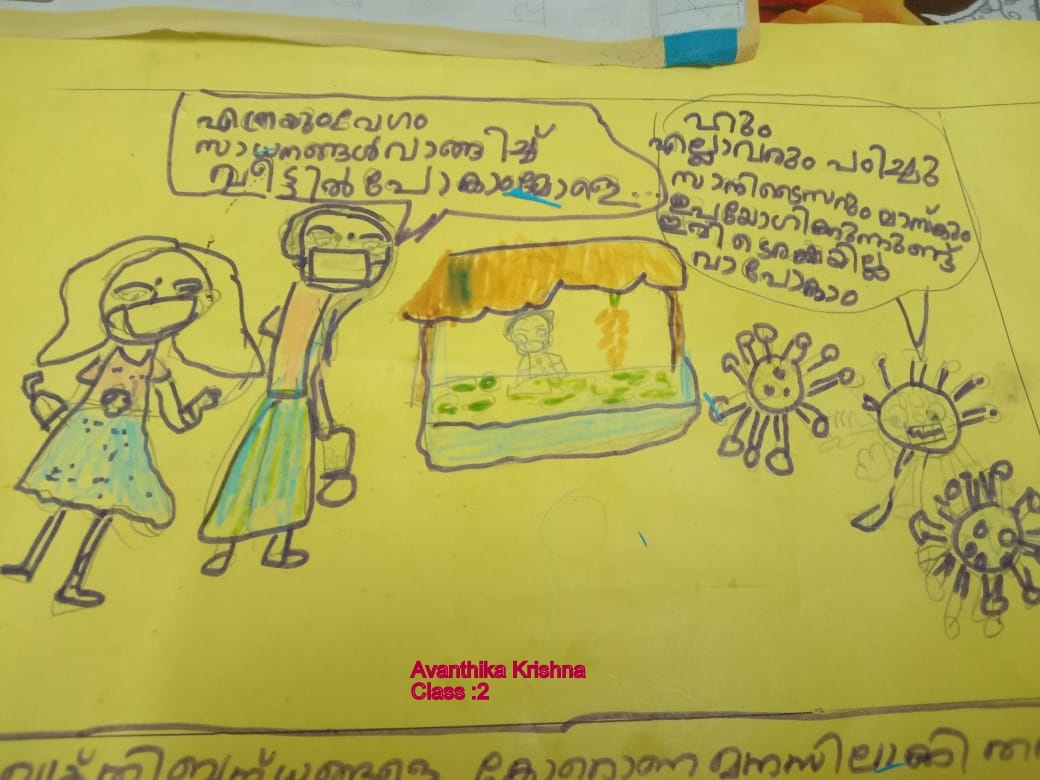 എത്രയുംവേഗം
സാധനങ്ങൾവാങ്ങിച്ച്
വീട്ടിൽപോകാംമോളെ...
ഹും
എല്ലാവരും പഠിച്ചു
സാനിടൈസറും മാസ്കും
ഉപയോഗിക്കുന്നുണ്ട്
വാ പോകാം
Avanthika Krishna
Class :2
കൊറോണ മനസിലാക്കി